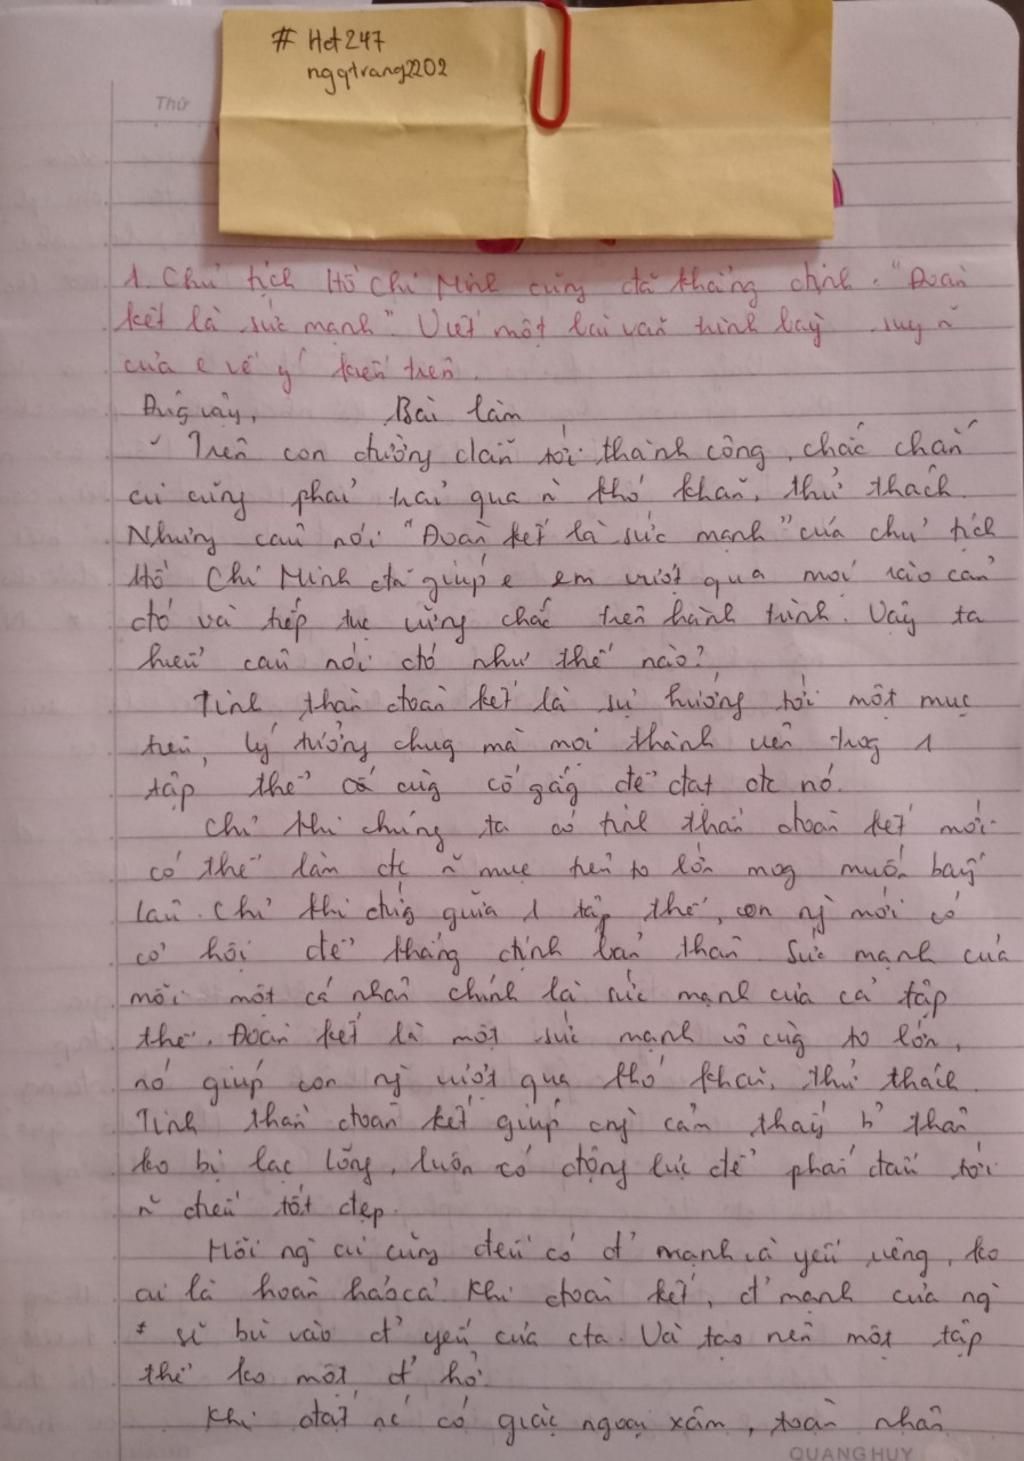 # Hct247
ngqtrang2202
Thứ
1. Chủ tịch Hồ Chí Minh cũng đã khẳng định. "Đoàn
kết là sức mạnh". Viết một bài văn trình bày suy ñ
của e về ý kiến trên.
Đúg vậy, Bài làm
Trên con đường dẫn tới thành công, chắc chắn
ai cũng phải trải qua ñ khó khăn, thử thách.
Nhưng câu nói "Đoàn kết là sức mạnh" của chủ tịch
Hồ Chí Minh đã giúp e em vượt qua mọi rào cản
đó và tiếp tục vững chắc trên hành trình. Vậy ta
hiểu câu nói đó như thế nào?
Tinh thần đoàn kết là sự hướng tới một mục
tiêu, lý tưởng chug mà mọi thành viên trog 1
tập thể cùg cố gắg để đạt đc nó.
Chỉ khi chúng ta có tinh thần đoàn kết mới
có thể làm đc ñ mục tiêu to lớn mog muốn bấy
lâu. Chỉ khi đứg giữa 1 tập thể, con ng` mới có
cơ hội để khẳng định bản thân. Sức mạnh của
mỗi một cá nhân chính là sức mạnh của cả tập
thể. Đoàn kết là một sức mạnh vô cùg to lớn,
nó giúp con ng` vượt qua khó khăn, thử thách.
Tinh thần đoàn kết giúp cng` cảm thấy b° thân
ko bị lạc lõng, luôn có động lực để phấn đấu tới
ñ điều tốt đẹp.
Mỗi ng` ai cũng đều có đ' mạnh và yếu riêng, ko
ai là hoàn hảo cả. Khi đoàn kết, đ' mạnh của ng`
sẽ bù vào đ' yếu của cta. Và tạo nên một tập
thể ko một đ' hở.
Khi đất nc' có giặc ngoại xâm, toàn nhân
QUANGHUY